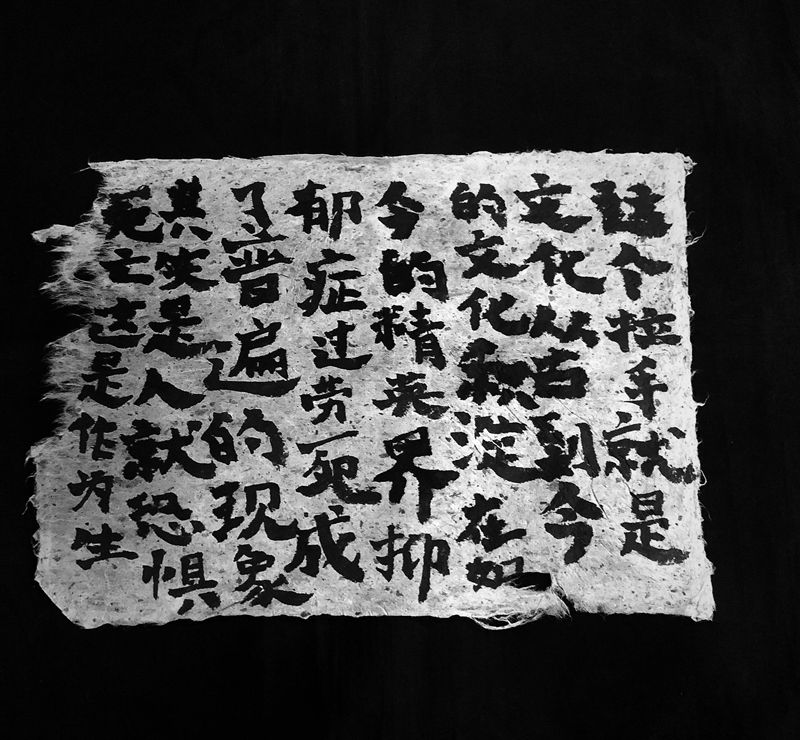 这个拉手就是
文化从古到今
的文化积淀在如
今的精英界抑
郁症过劳死成
了普遍的现象
其实是人就恐惧
死亡这是作为生